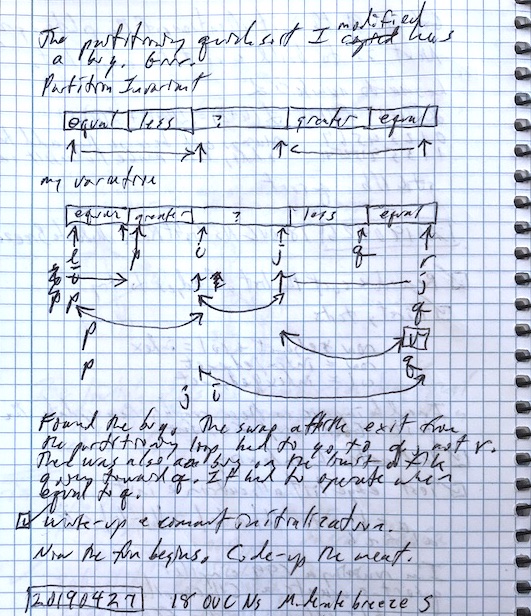 The partitioning quicksort I modified copied has
a bug. Grrr.
Partition Invariant
equal less ? greater equal
my variation
equal greater ? less equal
l p i j q r
i j
p p q
p v
p q
j i
Found the bug. The swap after the exit from
the partitioning loop had to go to q, not r.
There was also a bug on the limit of the
going toward q. It had to operate when
equal to q.
Write-up comment initialization.
Now the fun begins. Code-up the meat.
20190427 18 OVC Ns Moderate breeze S